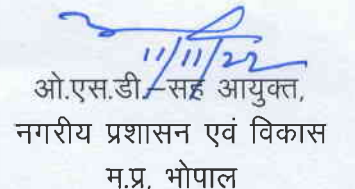 11/11/22
ओ.एस.डी.–सह आयुक्त,
नगरीय प्रशासन एवं विकास
म.प्र, भोपाल